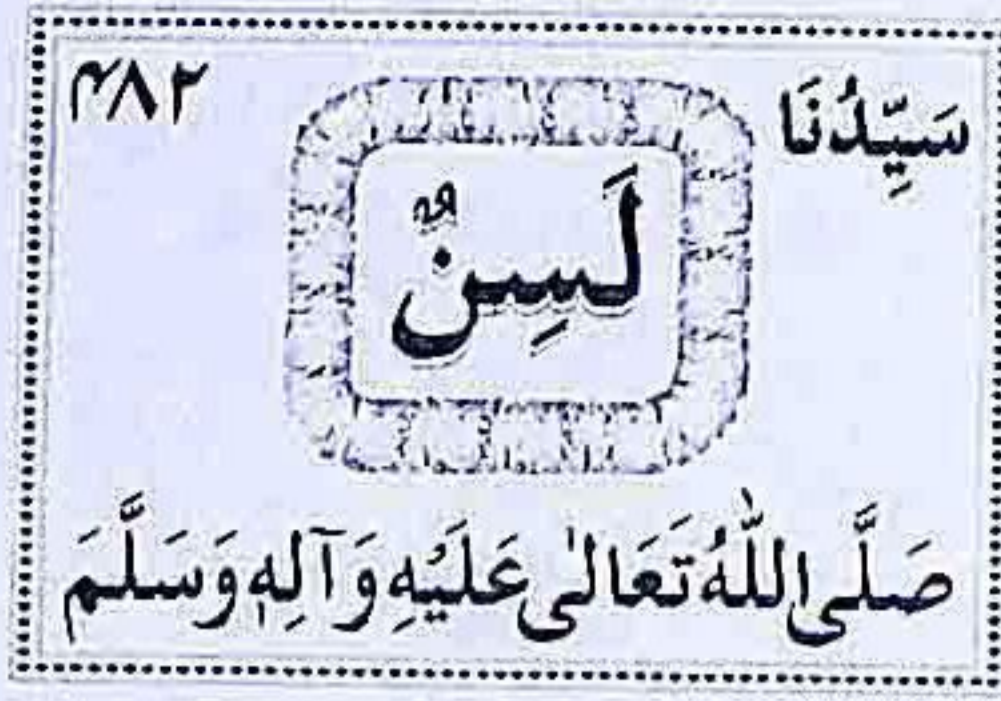 سَيِّدُنَا ۴۸۲
لَسِنٌ
صَلَّى اللّٰهُ تَعَالٰى عَلَيْهِ وَآلِهٖ وَسَلَّمَ